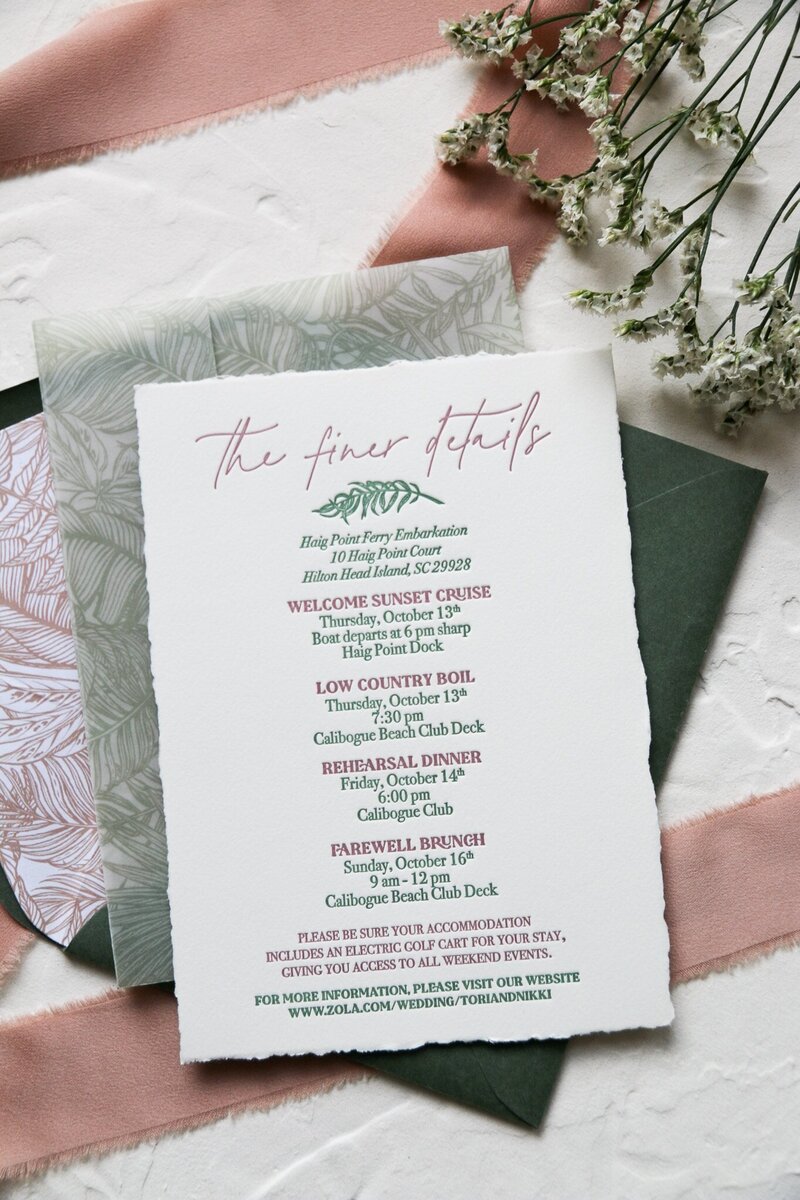 the finer details
Haig Point Ferry Embarkation
10 Haig Point Court
Hilton Head Island, SC 29928
WELCOME SUNSET CRUISE
Thursday, October 13th
Boat departs at 6 pm sharp
Haig Point Dock
LOW COUNTRY BOIL
Thursday, October 13th
7:30 pm
Calibogue Beach Club Deck
REHEARSAL DINNER
Friday, October 14th
6:00 pm
Calibogue Club
FAREWELL BRUNCH
Sunday, October 16th
9 am - 12 pm
Calibogue Beach Club Deck
PLEASE BE SURE YOUR ACCOMMODATION
INCLUDES AN ELECTRIC GOLF CART FOR YOUR STAY,
GIVING YOU ACCESS TO ALL WEEKEND EVENTS.
FOR MORE INFORMATION, PLEASE VISIT OUR WEBSITE
WWW.ZOLA.COM/WEDDING/TORIANDNIKKI